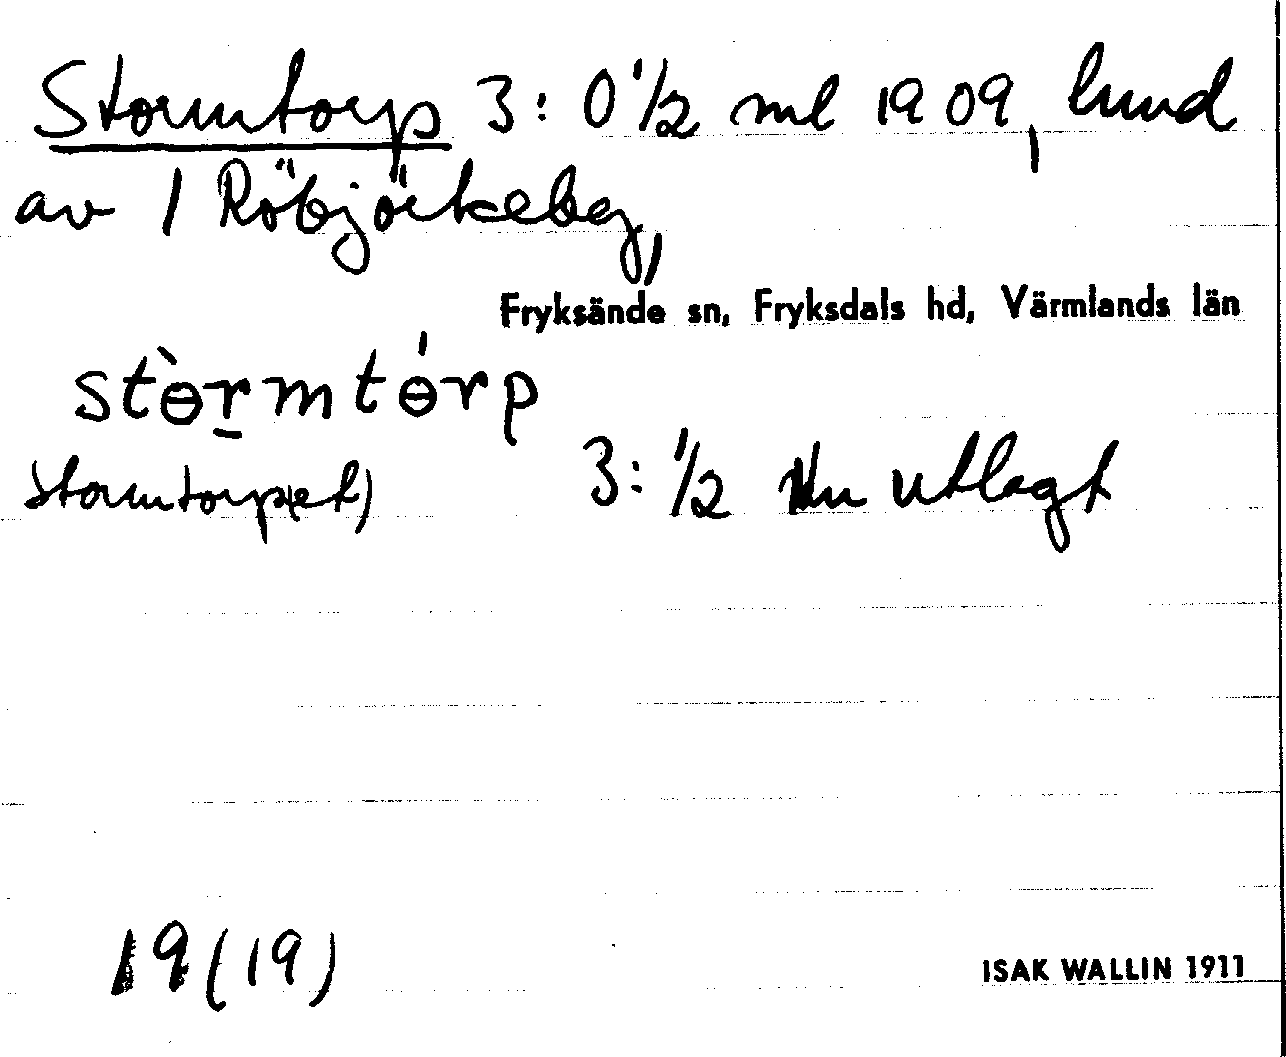 Stormtorp 3: 0 1/2 ml 1909, lund
av 1 Röbjörkeby,
Fryksände sn, Fryksdals hd, Värmlands län
stɵ̀r̠mtɵ́rp
Stormtorp(et) 3: 1/2 Nu utlagt
19 (19)
ISAK WALLIN 1911